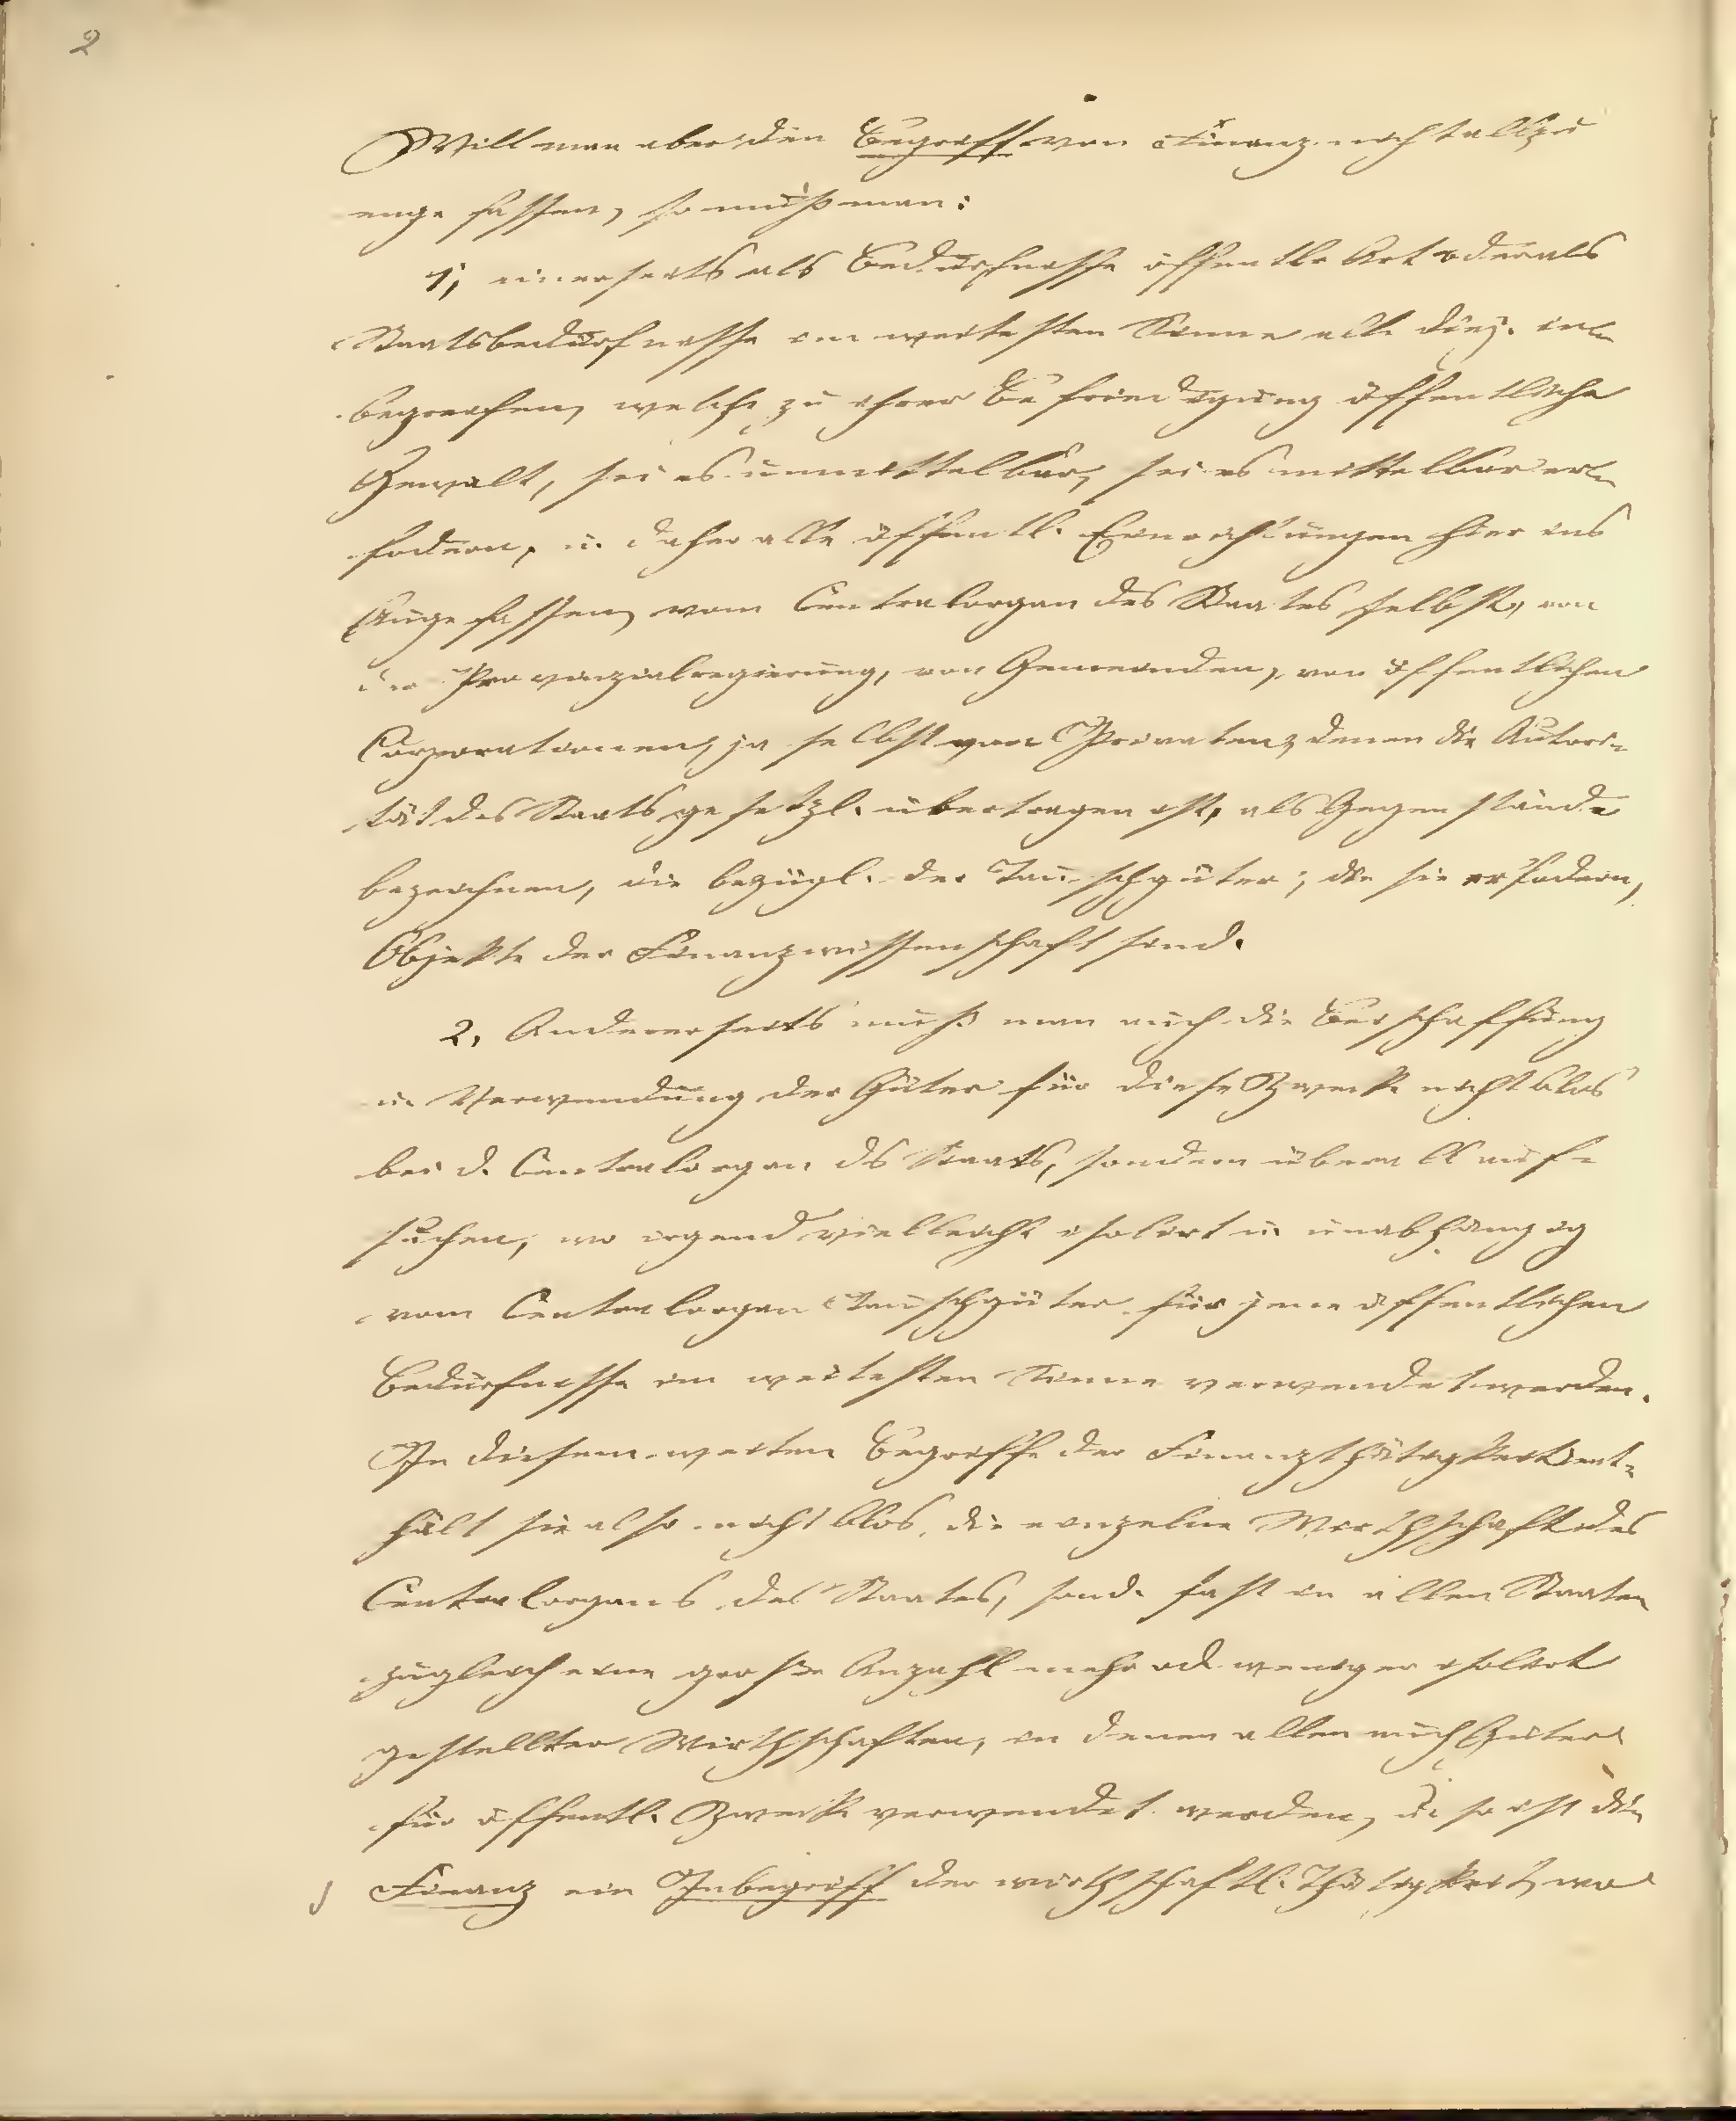 2
Will man aber den Begriff von Finanz nicht allzu
enge fassen, so muß man:
1, einerseits als Bedürfnisse öffentlr Art oder als
Staatsbedürfnisse im weitesten Sinne alle diej. in-
begreifen, welche zu ihrer Befriedigung öffentliche
Gewalt, sei es unmittelbar, sei es mittelbar er-
fodern, u. daher alle öffentl. Einrichtungen hier ins
Auge fassen, vom Centralorgan des Staates selbst, von
der Provinzialregierung, von Gemeinden, von öffentlichen
Corporationen, ja selbst von Privaten, denen die Autori-
tät des Staats gesetzl. übertragen ist, als Gegenstände
bezeichnen, die bezügl. der Tauschgüter, die sie erfodern,
Objekte der Finanzwissenschaft sind.
2, Andererseits muß man auch die Beischaffung
u. Verwendung der Güter für diese Zwecke nicht blos
bei d. Centralorgan ds Staats, sondern überall auf-
suchen, wo irgend vielleicht isolirt u. unabhängig
vom Centralorgan Tauschgüter für jene öffentlichen
Bedürfnisse im weitesten Sinne verwendet werden.
In diesem weiten Begriffe der Finanzthätigkeit ent-
hält sie also nicht blos die einzelne Wirthschaft des
Centralorgans des Staates, sond. fast in allen Staaten
zugleich eine große Anzahl mehr od. weniger isolirt
gestellter Wirthschaften, in denen allen auch Güter
für öffentl. Zwecke verwendet werden, u. so ist die
Finanz ein Inbegriff der wirthschaftl. Thätigkeit, wo